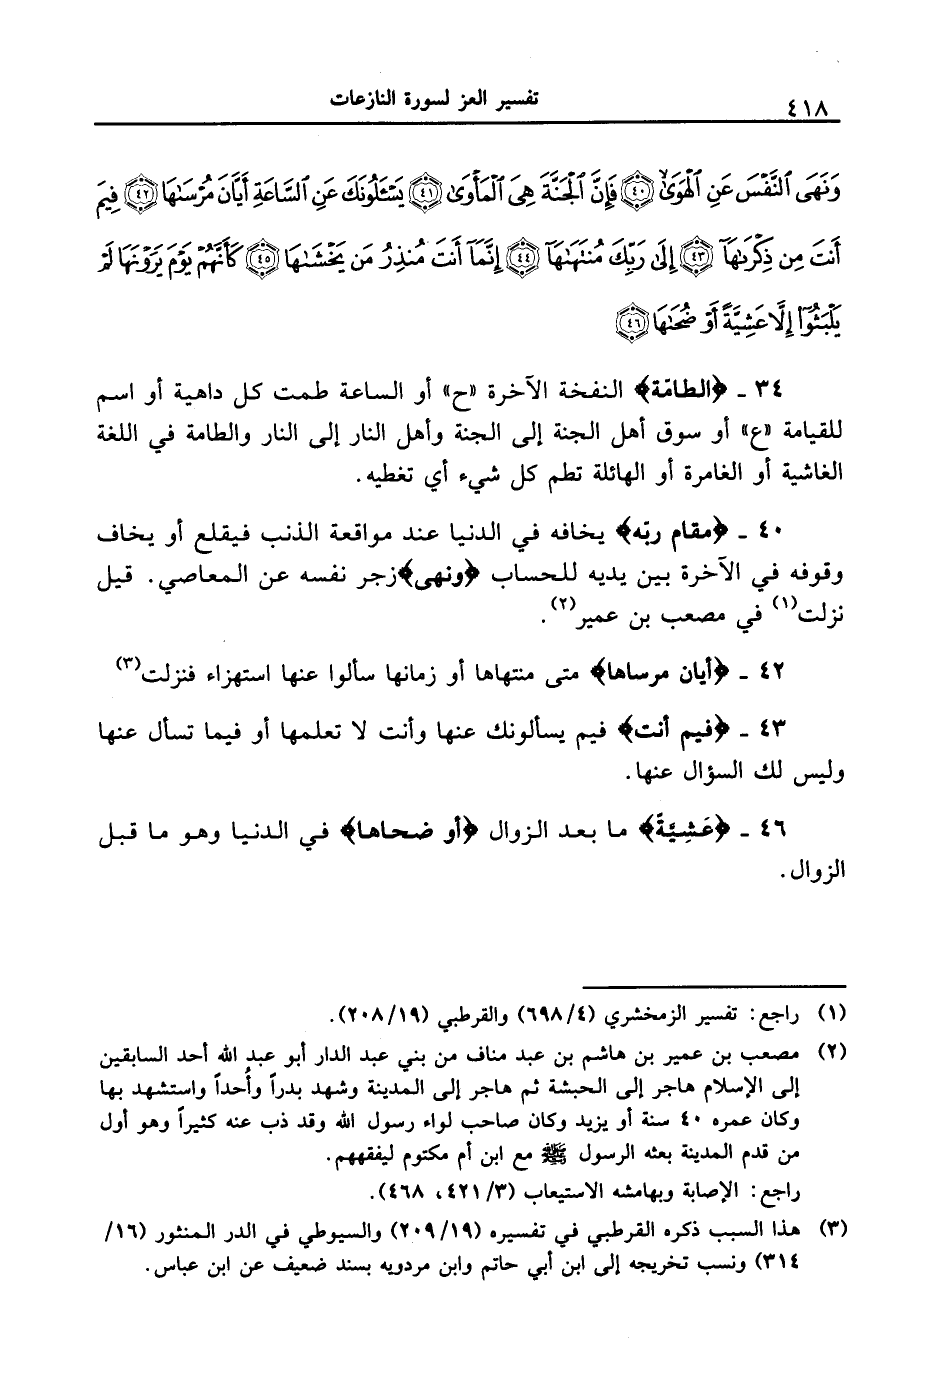 تفسير العز لسورة النازعات
٤١٨
وَنَهَى ٱلنَّفْسَ عَنِ ٱلْهَوَىٰ ٤٠ فَإِنَّ ٱلْجَنَّةَ هِىَ ٱلْمَأْوَىٰ ٤١ يَسْـَٔلُونَكَ عَنِ ٱلسَّاعَةِ أَيَّانَ مُرْسَىٰهَا ٤٢ فِيمَ
أَنتَ مِن ذِكْرَىٰهَآ ٤٣ إِلَىٰ رَبِّكَ مُنتَهَىٰهَآ ٤٤ إِنَّمَآ أَنتَ مُنذِرُ مَن يَخْشَىٰهَا ٤٥ كَأَنَّهُمْ يَوْمَ يَرَوْنَهَا لَمْ
يَلْبَثُوٓا۟ إِلَّا عَشِيَّةً أَوْ ضُحَىٰهَا ٤٦
٣٤ - ﴿الطامّة﴾ النفخة الآخرة «ح» أو الساعة طمت كل داهية أو اسم
للقيامة «ع» أو سوق أهل الجنة إلى الجنة وأهل النار إلى النار والطامة في اللغة
الغاشية أو الغامرة أو الهائلة تطم كل شيء أي تغطيه.
٤٠ - ﴿مقام ربّه﴾ يخافه في الدنيا عند مواقعة الذنب فيقلع أو يخاف
وقوفه في الآخرة بين يديه للحساب ﴿ونهى﴾ زجر نفسه عن المعاصي. قيل
نزلت(١) في مصعب بن عمير(٢).
٤٢ - ﴿أيان مرساها﴾ متى منتهاها أو زمانها سألوا عنها استهزاء فنزلت(٣)
٤٣ - ﴿فيم أنت﴾ فيم يسألونك عنها وأنت لا تعلمها أو فيما تسأل عنها
وليس لك السؤال عنها.
٤٦ - ﴿عَشِيَّةً﴾ ما بعد الزوال ﴿أو ضحاها﴾ في الدنيا وهو ما قبل
الزوال.
(١) راجع: تفسير الزمخشري (٦٩٨/٤) والقرطبي (٢٠٨/١٩).
(٢) مصعب بن عمير بن هاشم بن عبد مناف من بني عبد الدار أبو عبد الله أحد السابقين
إلى الإسلام هاجر إلى الحبشة ثم هاجر إلى المدينة وشهد بدراً وأُحداً واستشهد بها
وكان عمره ٤٠ سنة أو يزيد وكان صاحب لواء رسول الله وقد ذب عنه كثيراً وهو أول
من قدم المدينة بعثه الرسول ﷺ مع ابن أم مكتوم ليفقههم.
راجع: الإصابة وبهامشه الاستيعاب (٤٢١/٣، ٤٦٨).
(٣) هذا السبب ذكره القرطبي في تفسيره (٢٠٩/١٩) والسيوطي في الدر المنثور (١٦/
٣١٤) ونسب تخريجه إلى ابن أبي حاتم وابن مردويه بسند ضعيف عن ابن عباس.